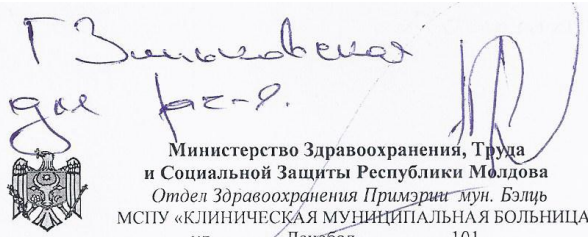 Г Зиньковская
для рас-я.
Министерство Здравоохранения, Труда
и Социальной Защиты Республики Молдова
Отдел Здравоохранения Примэрии мун. Бэлць
МСПУ «КЛИНИЧЕСКАЯ МУНИЦИПАЛЬНАЯ БОЛЬНИЦА